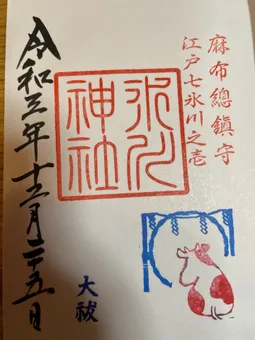 麻布總鎮守
江戸七氷川之壱
氷川
神社
令和三年十二月二五日
大祓